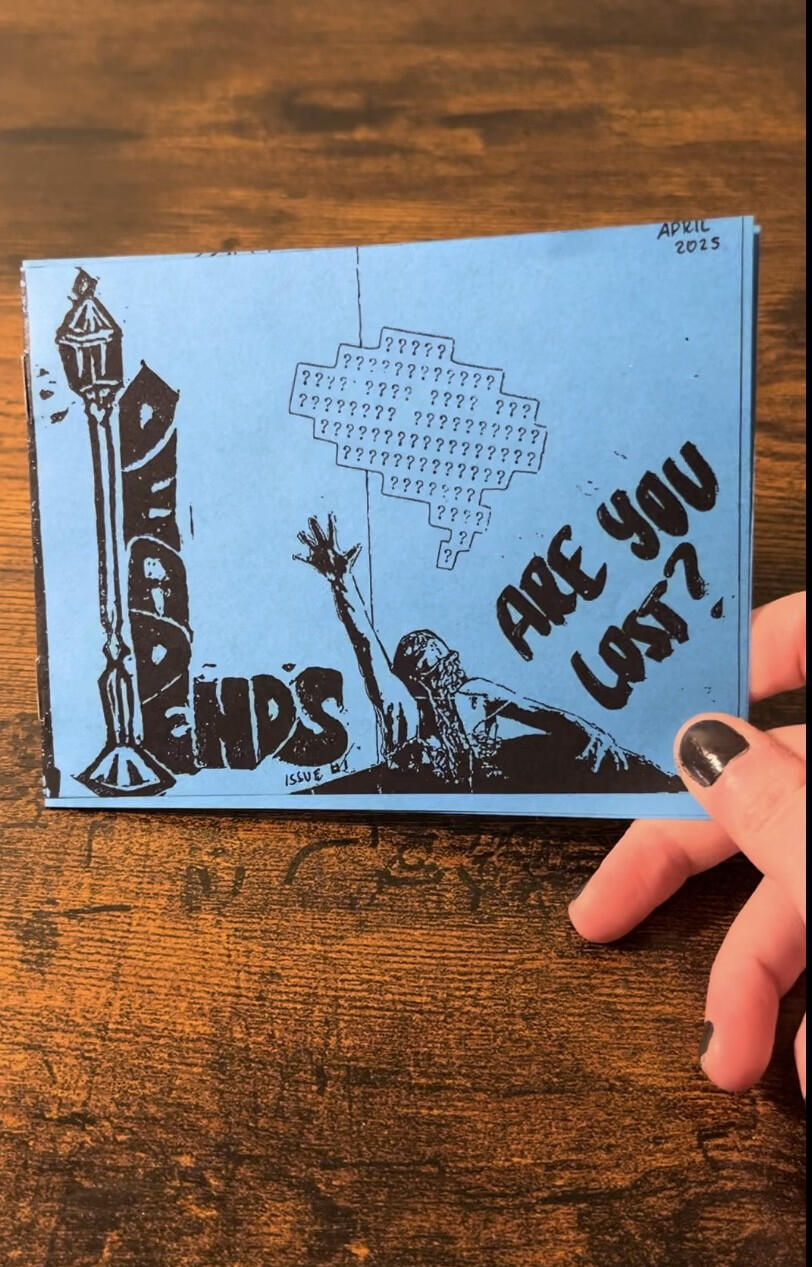 APRIL
2025
DEAD
ENDS
ISSUE #1
?????
????????????
???? ???? ???? ???
???????? ??????????
??????????????????
???????????????
????????
????
?
?
ARE YOU
LOST?